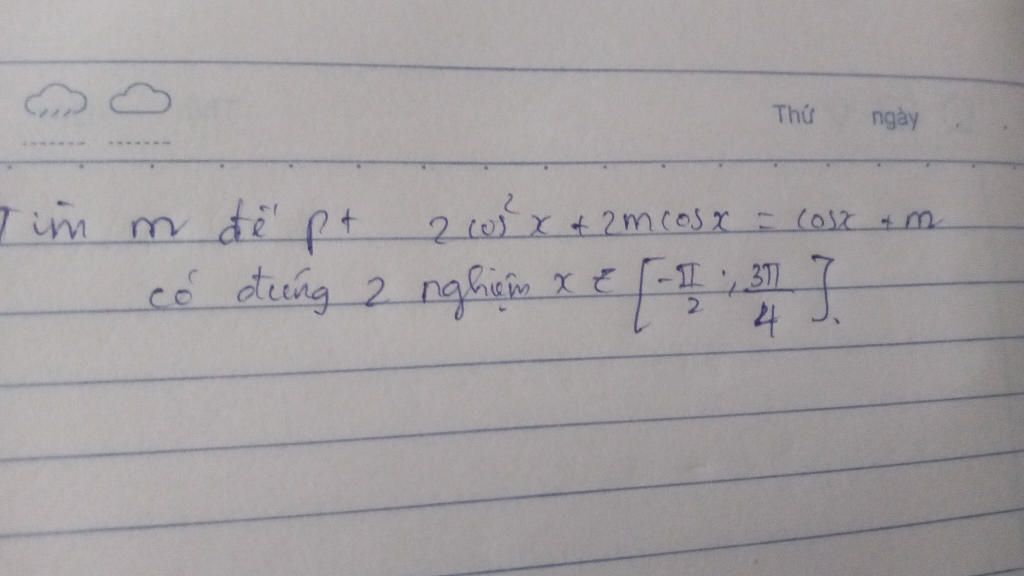 Thứ ngày
Tìm m để pt 2cos²x + 2mcosx = cosx + m
có đúng 2 nghiệm x ∈ [-π/2 ; 3π/4].